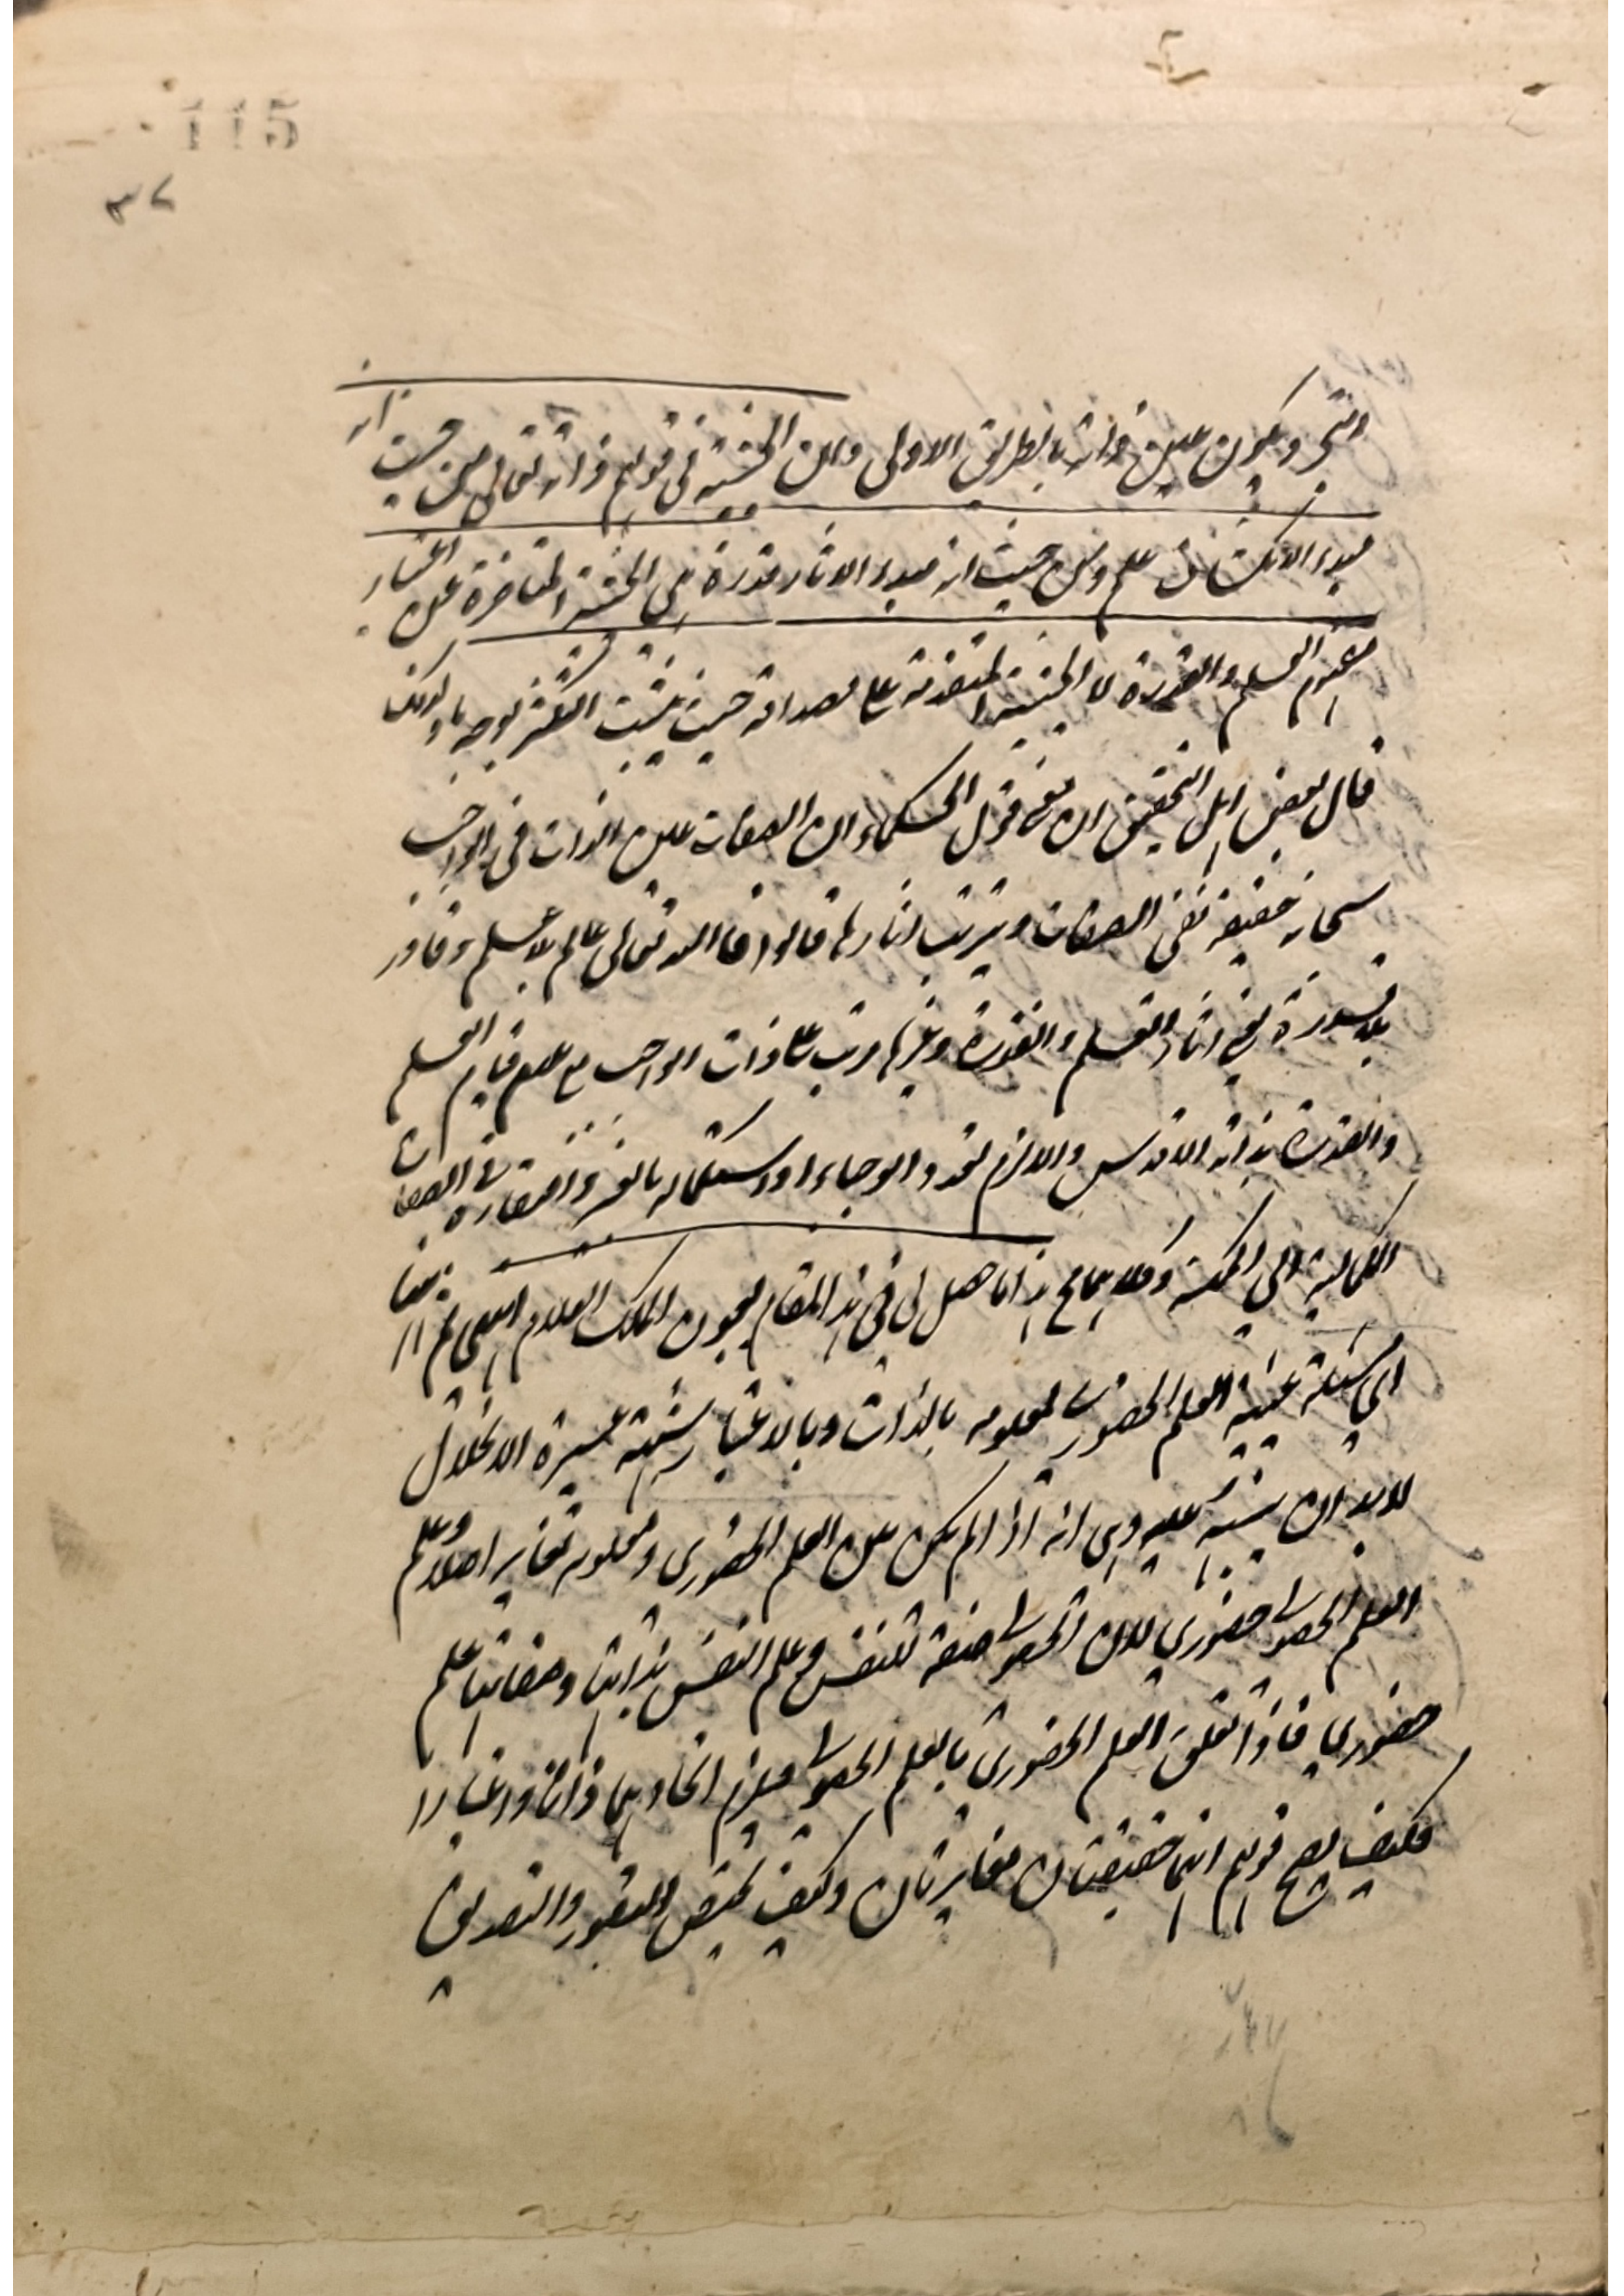 115
٣٧
التجرد يكون عين ذاته بالطريق الاولى وان الحيثية في قولهم ذاته تعالى من حيث انه
مبدء الانكشاف علم ومن حيث انه مبدء الاثار قدرة هي الحيثية المتاخرة عن اعتبار
مفهوم العلم والقدرة لا الحيثية المتقدمة على مصداقه حيث يثبت التكثر بوجه ما ولذلك
قال بعض اهل التحقيق ان معنى قول الحكماء ان الصفات عين الذات في الواجب
سبحانه حقيقة نفى الصفات وترتب اثارها قالوا ان الله تعالى عالم بلا علم وقادر
بلا قدرة يعني اثار العلم والقدرة وغيرها مرتب على ذات الواجب مع عدم قيام العلم
والقدرة بذاته الاقدس والا لزم تعدد الوجباء او استكماله بالغير وافتقاره في الصفات
الكمالية الى الممكنة وكلاهما مح هذا ما حصل لي في هذا المقام بعون الملك العلام انتهى ثم ان ههنا
اي مسئلة عينية العلم الحضوري لمعلومه بالذات وبالاعتبار شبهة عسيرة الانحلال
لا بد ان ينبه عليه وهي انه اذا لم يكن بين العلم الحضوري ومعلومه تغاير اصلا وعلم
العلم الحصولي حضوري لان الحصولي صفة للنفس وعلم النفس بذاتها وصفاتها علم
حضوري فاذا تعلق العلم الحضوري بالعلم الحصولي فيلزم اتحادهما ذاتا واعتبارا
فكيف يصح قولهم انهما حقيقتان متغايرتان وكيف يختص التصور والتصديق